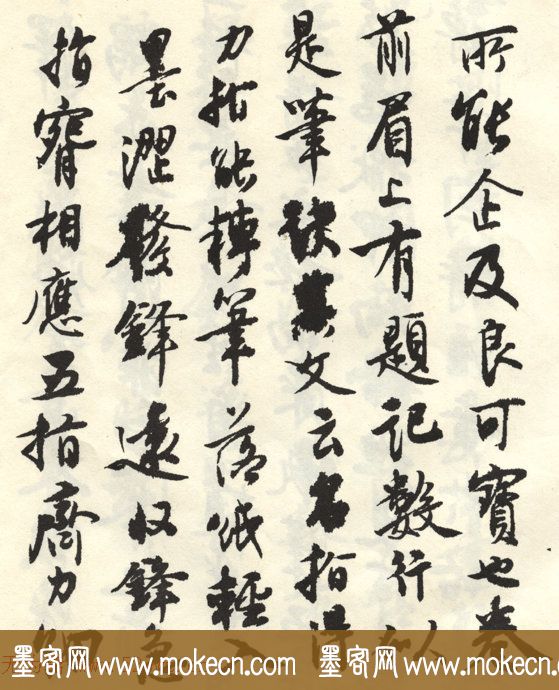 所能企及良可寶也卷
前眉上有題記數行似
是筆訣其文云名指得
力指能轉筆落紙輕入
墨澀發鋒遠收鋒急
指實相應五指齊力
墨客网 www.mokecn.com 墨客网 www.mokecn.com